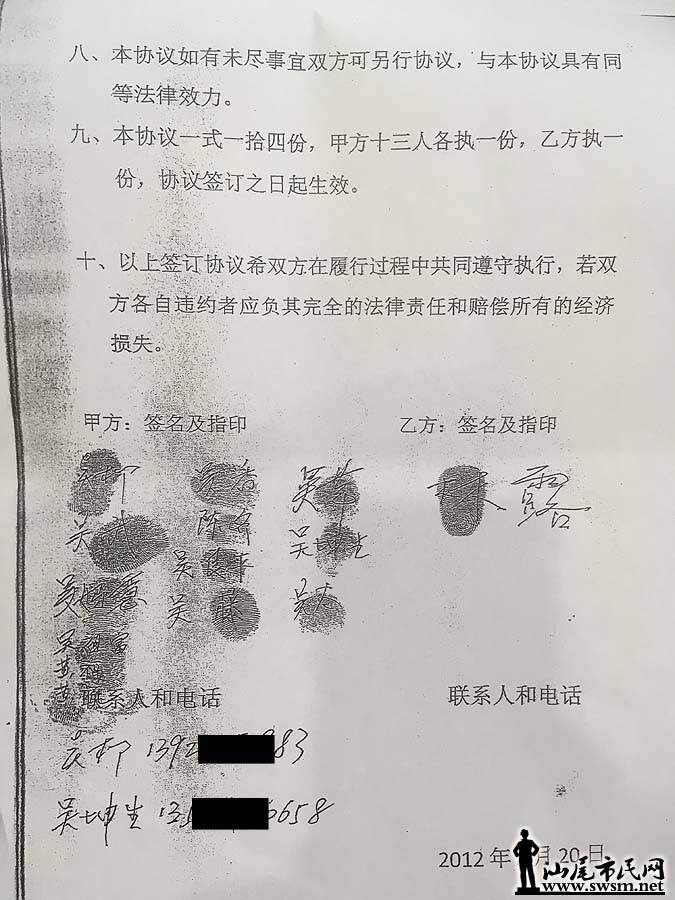 八、本协议如有未尽事宜双方可另行协议，与本协议具有同
等法律效力。
九、本协议一式一拾四份，甲方十三人各执一份，乙方执一
份，协议签订之日起生效。
十、以上签订协议希双方在履行过程中共同遵守执行，若双
方各自违约者应负其完全的法律责任和赔偿所有的经济
损失。
甲方：签名及指印 乙方：签名及指印
吴
陈
吴坤生
吴
露
联系人和电话 联系人和电话
139 983
吴坤生 13 6658
2012 年 月 20 日
汕尾市民网
www.swsm.net